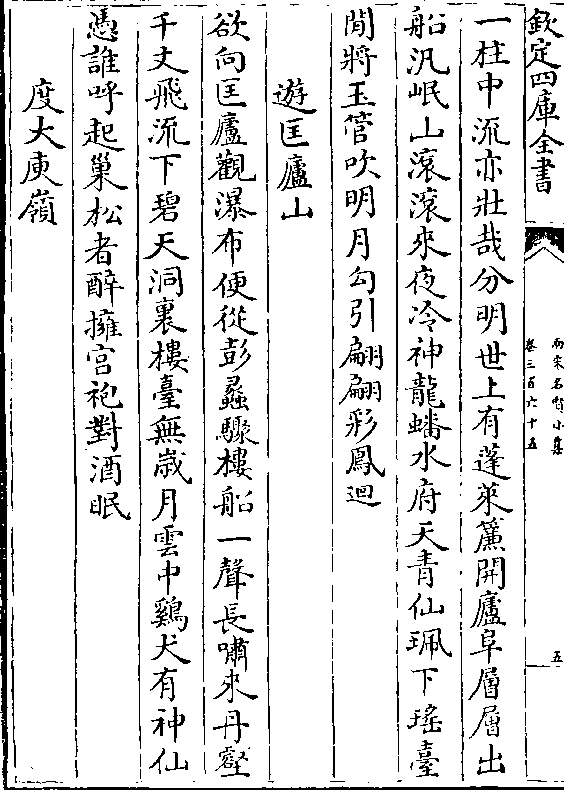 欽定四庫全書
兩宋名賢小集
卷三百六十五
五
一柱中流亦壯哉分明世上有蓬萊簾開廬阜層層出
船汎岷山滾滾來夜冷神龍蟠水府天青仙珮下瑤臺
閒將玉管吹明月勾引翩翩彩鳳迴
遊匡廬山
欲向匡廬觀瀑布便從彭蠡驟樓船一聲長嘯來丹壑
千丈飛流下碧天洞裏樓臺無歳月雲中鷄犬有神仙
憑誰呼起巢松者醉擁宫袍對酒眠
度大庾嶺